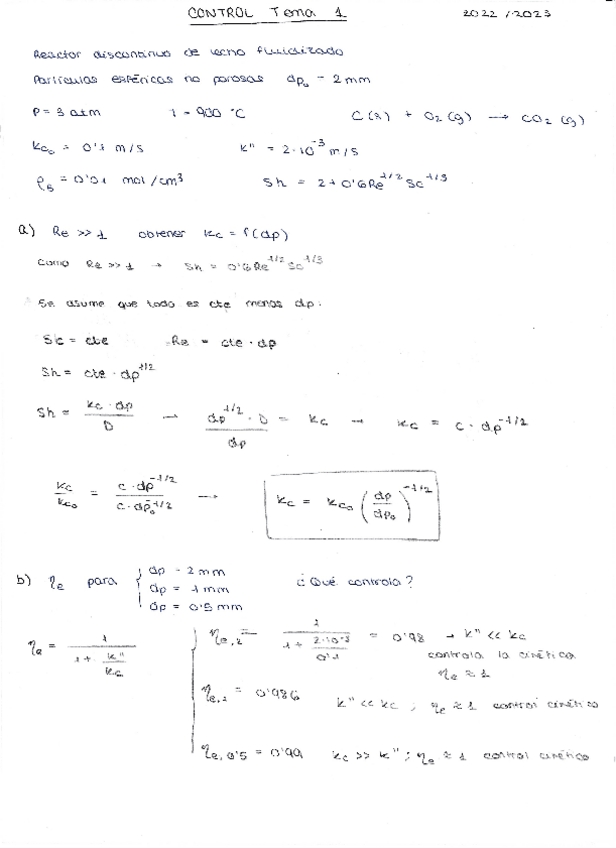 CONTROL Tema 1 2022/2023
Reactor discontinuo de lecho fluidizado
Partículas esféricas no porosas dp₀ = 2mm
P = 3 atm T = 900 °C C(s) + O₂(g) → CO₂(g)
kc₀ = 0'1 m/s k'' = 2·10⁻³ m/s
ρs = 0'01 mol/cm³ Sh = 2 + 0'6Re^1/2 Sc^1/3
a) Re >> 1 obtener kc = f(dp)
Como Re >> 1 → Sh = 0'6Re^1/2 Sc^1/3
Se asume que todo es cte menos dp:
Sc = cte Re = cte · dp
Sh = cte · dp^1/2
Sh = kc · dp / D → dp^1/2 · D / dp = kc → kc = c · dp^-1/2
kc / kc₀ = c · dp^-1/2 / c · dp₀^-1/2 → kc = kc₀ (dp / dp₀)^-1/2
b) ηe para { dp = 2mm
dp = 1mm ¿Qué controla?
dp = 0'5mm
ηe = 1 / (1 + k''/kc) { ηe,2 = 1 / (1 + 2·10⁻³/0'1) = 0'98 → k'' << kc
controla la cinética
ηe ≈ 1
ηe,1 = 0'986 k'' << kc ; ηe ≈ 1 control cinético
ηe,0'5 = 0'99 kc >> k'' ; ηe ≈ 1 control cinético